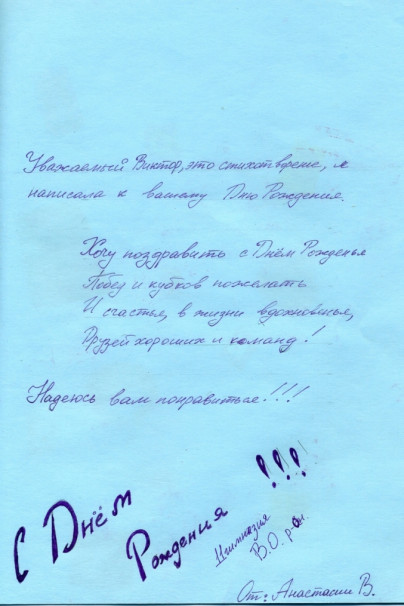 Уважаемый Виктор, это стихотврение, я
написала к вашему Дню Рождения.
Хочу поздравить с Днём Рожденья
Побед и кубков пожелать
И счастья, в жизни вдохновенья,
Друзей хороших и команд!
Надеюсь вам понравиться!!!
С Днём
Рождения !!!
гимназия
В.О. р-он.
От: Анастасии В.